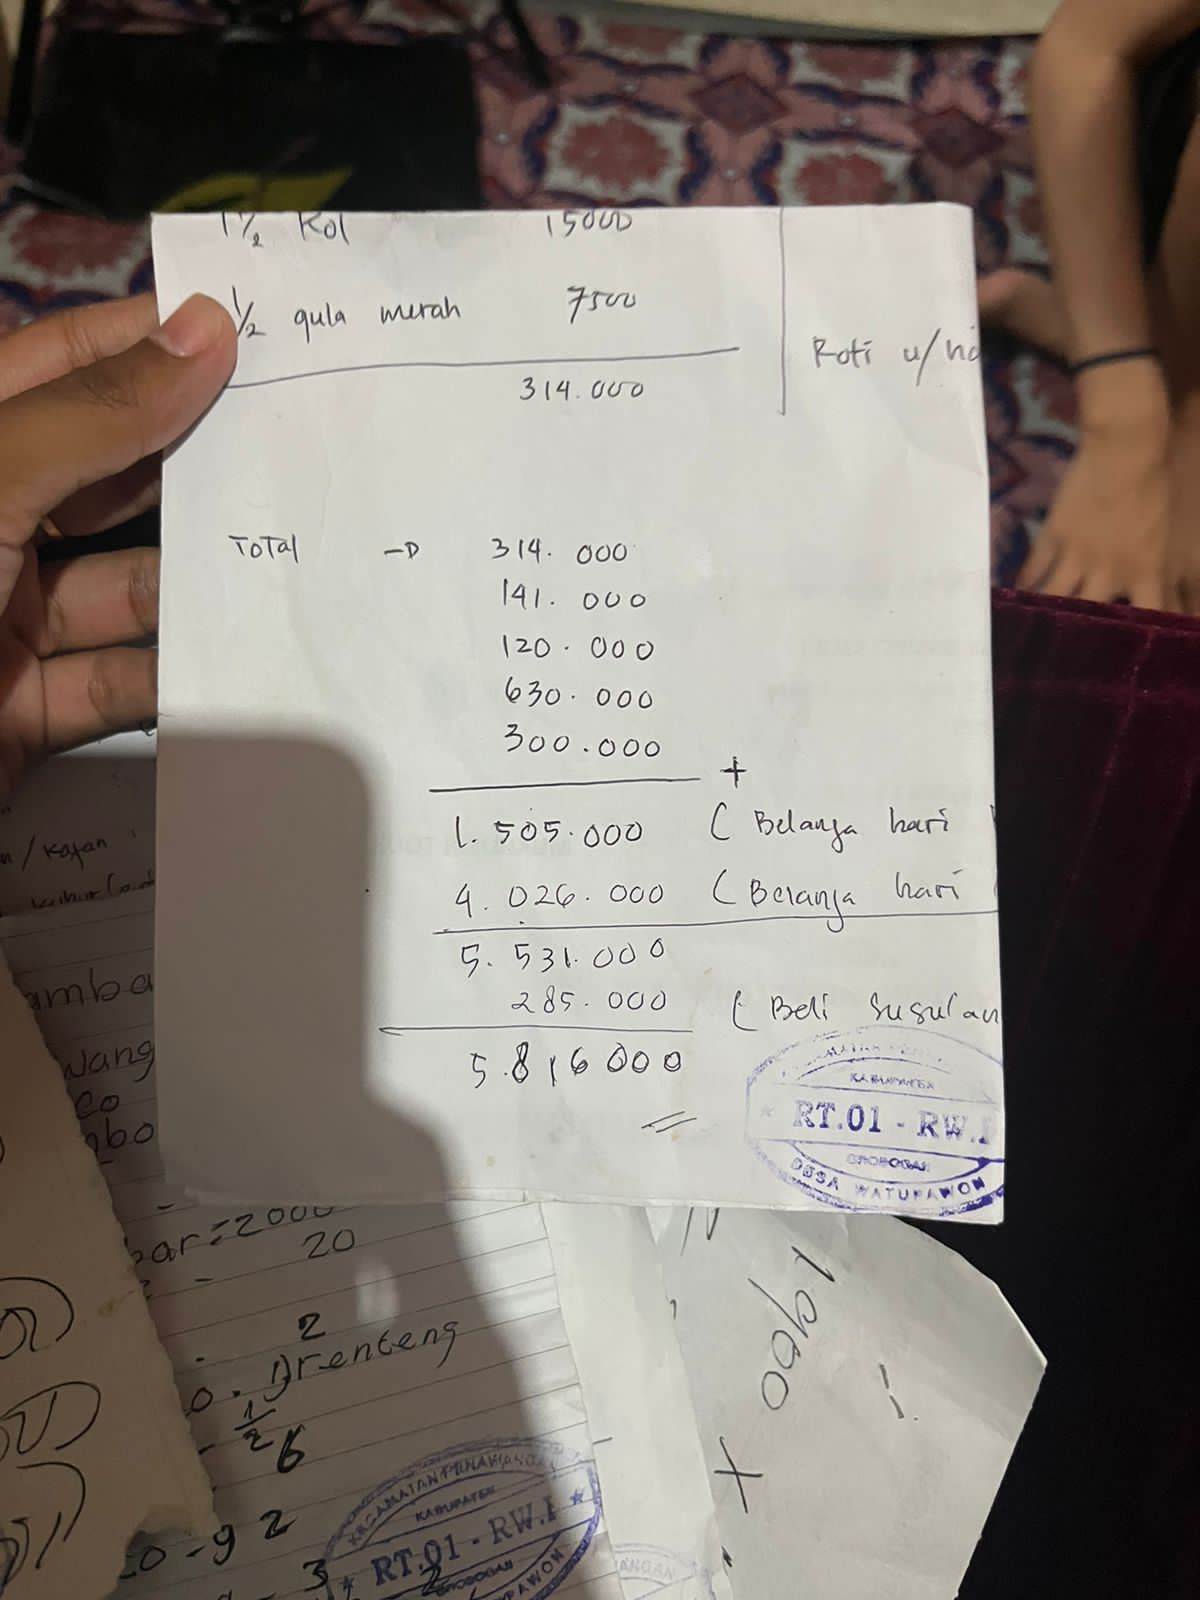 1 1/2 Kol 15000
1/2 gula merah 7500
314.000
Roti u/
Total → 314.000
141.000
120.000
630.000
300.000
+
1.505.000 ( Belanja hari
4.026.000 ( Belanja hari
5.531.000
285.000 ( Beli susulan
5.816000
KABUPATEN
RT.01 - RW.I
GROBOGAN
DESA WATUPAWON
/ Kajan
amba
wang
co
abo
bar = 2000
20
2
0. grenteng
1/2 6
20 - 92
3
1900
+
KECAMATAN PENAWANGAN
KABUPATEN
RT.01 - RW.I
GROBOGAN
WATUPAWON
ANGAN